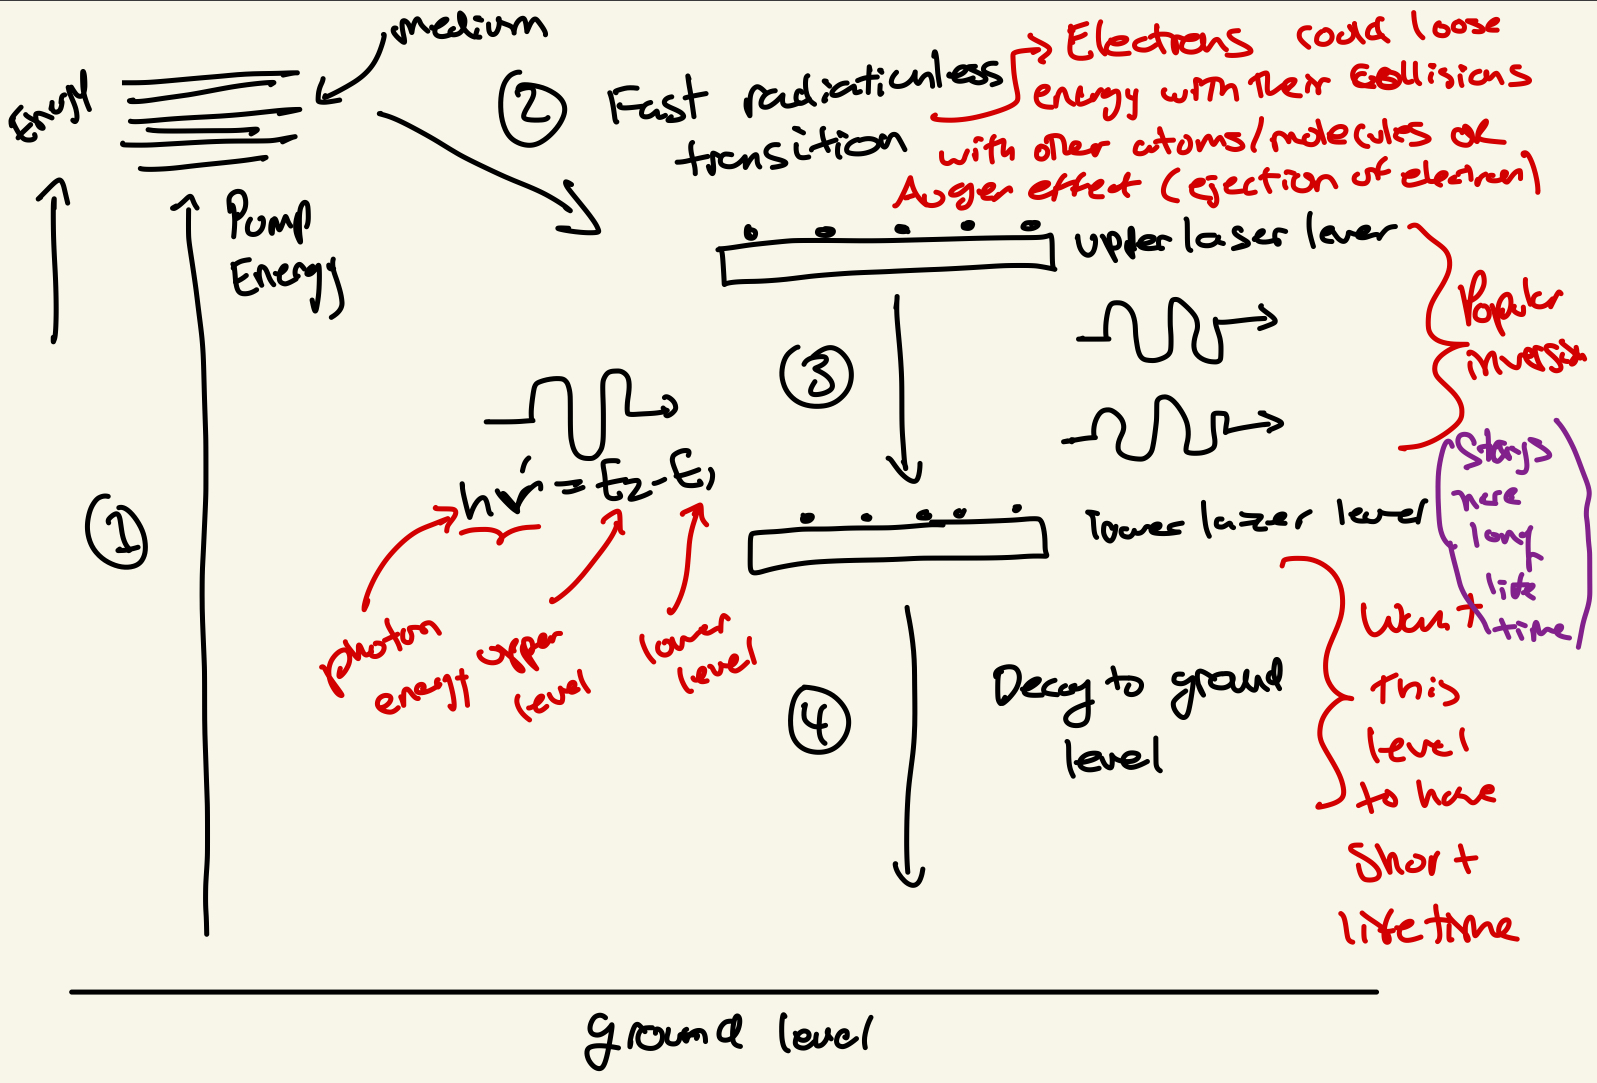 medium
Energy
Pump
Energy
①
② Fast radiationless
transition
Electrons could loose
energy with their collisions
with other atoms/molecules or
Auger effect (ejection of electron)
upper laser lever
Popular
inversion
③
hν = E2 - E1
photon
energy
upper
level
lower
level
lower lazer lever
(Stays
here
long
life
time)
Want
this
level
to have
short
lifetime
④
Decay to ground
level
ground level